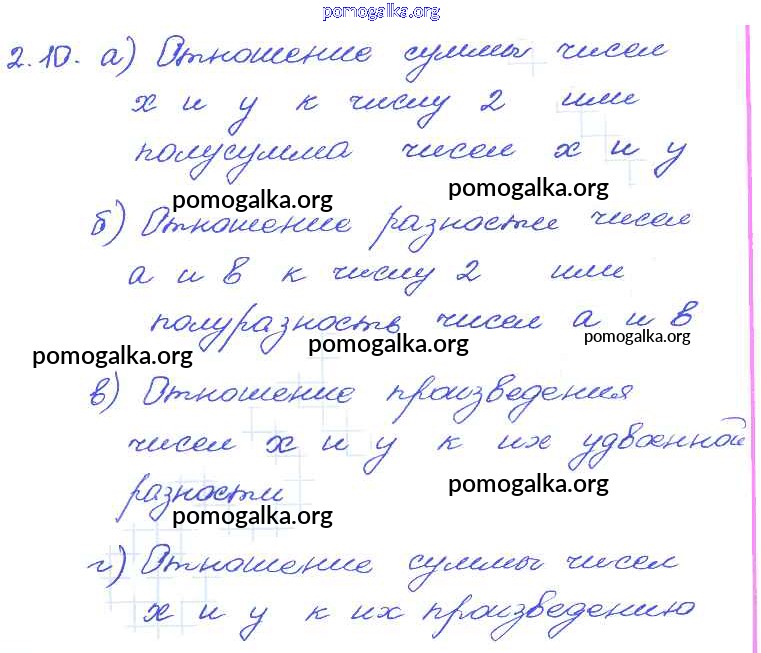 pomogalka.org
2.10. а) Отношение суммы чисел
х и у к числу 2 или
полусумма чисел х и у
pomogalka.org pomogalka.org
б) Отношение разности чисел
а и в к числу 2 или
полуразность чисел а и в
pomogalka.org pomogalka.org pomogalka.org
в) Отношение произведения
чисел х и у к их удвоенной
разности
pomogalka.org pomogalka.org
г) Отношение суммы чисел
х и у к их произведению